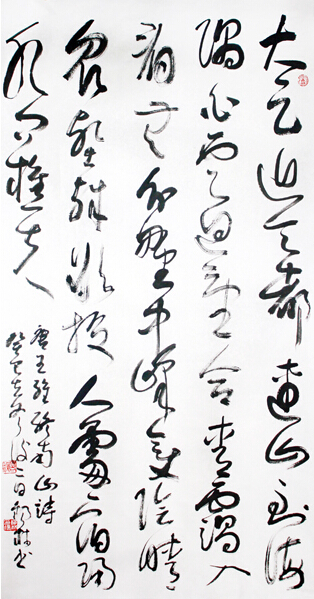 太乙近天都連山到海
隅白雲回望合青靄入
看無分野中峰變陰晴
衆壑殊欲投人處宿隔
水問樵夫
唐王維終南山詩
癸巳 二日 林书